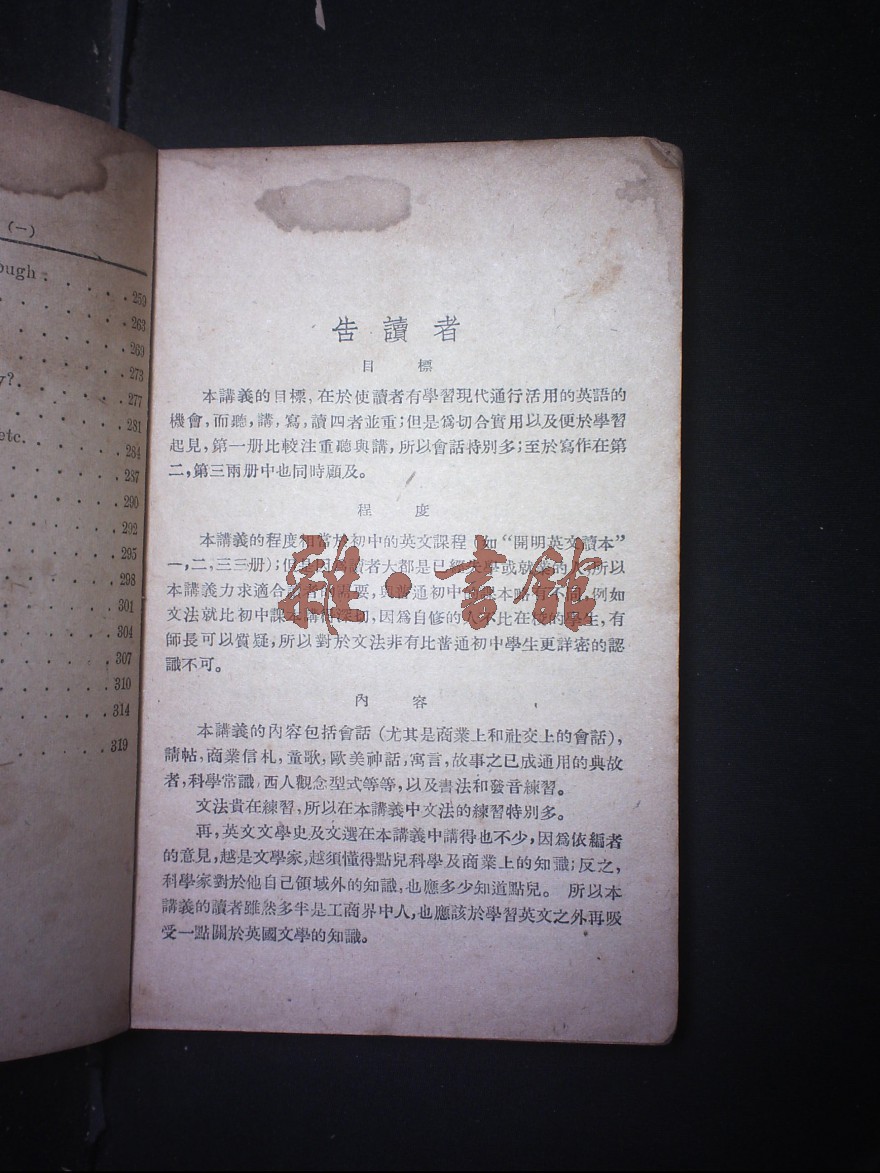 (一)
ough . . . . . 259
263
269
273
y?
277
281
etc.
284
287
290
292
295
298
301
304
307
310
314
319
告讀者
目標
本講義的目標, 在於使讀者有學習現代通行活用的英語的
機會, 而聽, 講, 寫, 讀四者並重; 但是爲切合實用以及便於學習
起見, 第一册比較注重聽與講, 所以會話特別多; 至於寫作在第
二, 第三兩册中也同時顧及。
程度
本講義的程度相當於初中的英文課程 (如“開明英文讀本”
一, 二, 三三册); 但是因爲讀者大都是已經失學或就業的人, 所以
本講義力求適合讀者的需要, 與普通初中的課本略有不同, 例如
文法就比初中課本講得深切, 因爲自修的人不比在校的學生, 有
師長可以質疑, 所以對於文法非有比普通初中學生更詳密的認
識不可。
內容
本講義的內容包括會話 (尤其是商業上和社交上的會話),
請帖, 商業信札, 童歌, 歐美神話, 寓言, 故事之已成通用的典故
者, 科學常識, 西人觀念型式等等, 以及書法和發音練習。
文法貴在練習, 所以在本講義中文法的練習特別多。
再, 英文文學史及文選在本講義中講得也不少, 因爲依編者
的意見, 越是文學家, 越須懂得點兒科學及商業上的知識; 反之,
科學家對於他自己領域外的知識, 也應多少知道點兒。 所以本
講義的讀者雖然多半是工商界中人, 也應該於學習英文之外再吸
受一點關於英國文學的知識。
雜·書館